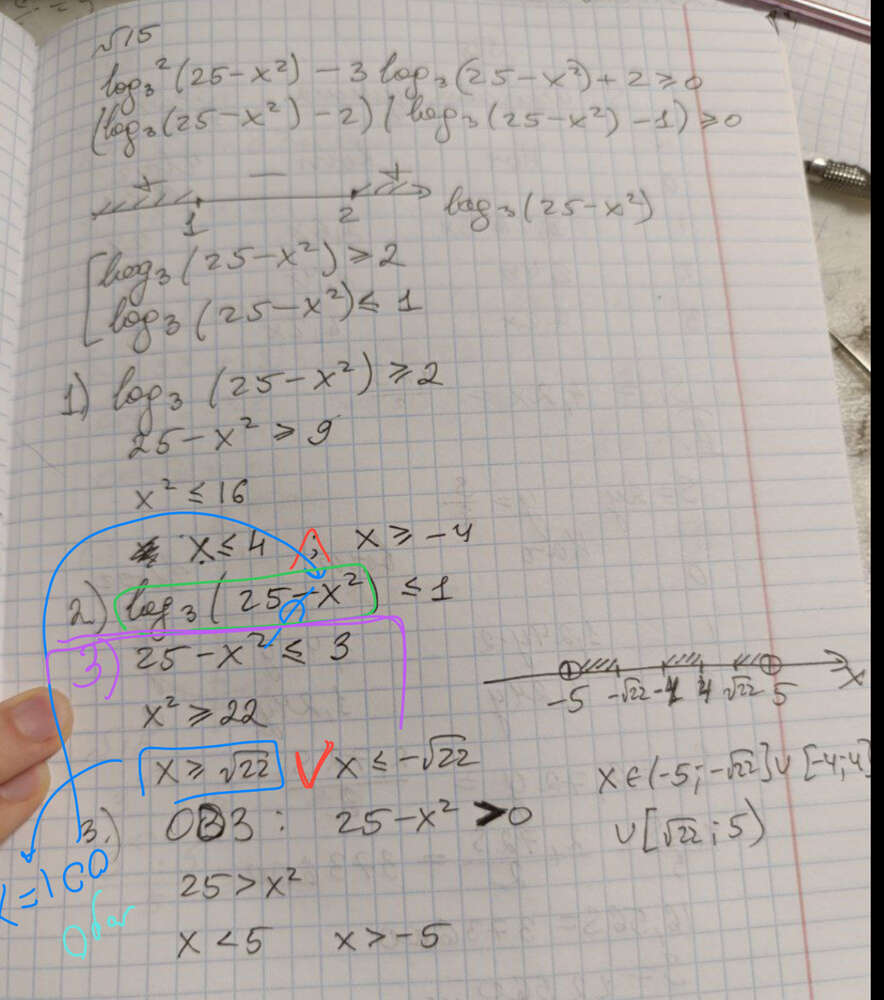 №15
log₃²(25-x²) - 3 log₃(25-x²) + 2 ≥ 0
(log₃(25-x²) - 2) (log₃(25-x²) - 1) ≥ 0
+ — +
1 2 log₃(25-x²)
[log₃(25-x²) ≥ 2
[log₃(25-x²) ≤ 1
1) log₃(25-x²) ≥ 2
25-x² ≥ 9
x² ≤ 16
x ≤ 4 ; x ≥ -4
2) log₃(25-x²) ≤ 1
3) 25-x² ≤ 3
x² ≥ 22
x ≥ √22 V x ≤ -√22
3.) ОВЗ: 25-x² > 0
25 > x²
x < 5 x > -5
x=100
-5 -√22 -4 4 √22 5 x
x∈(-5;-√22]∪[-4;4]
∪[√22;5)